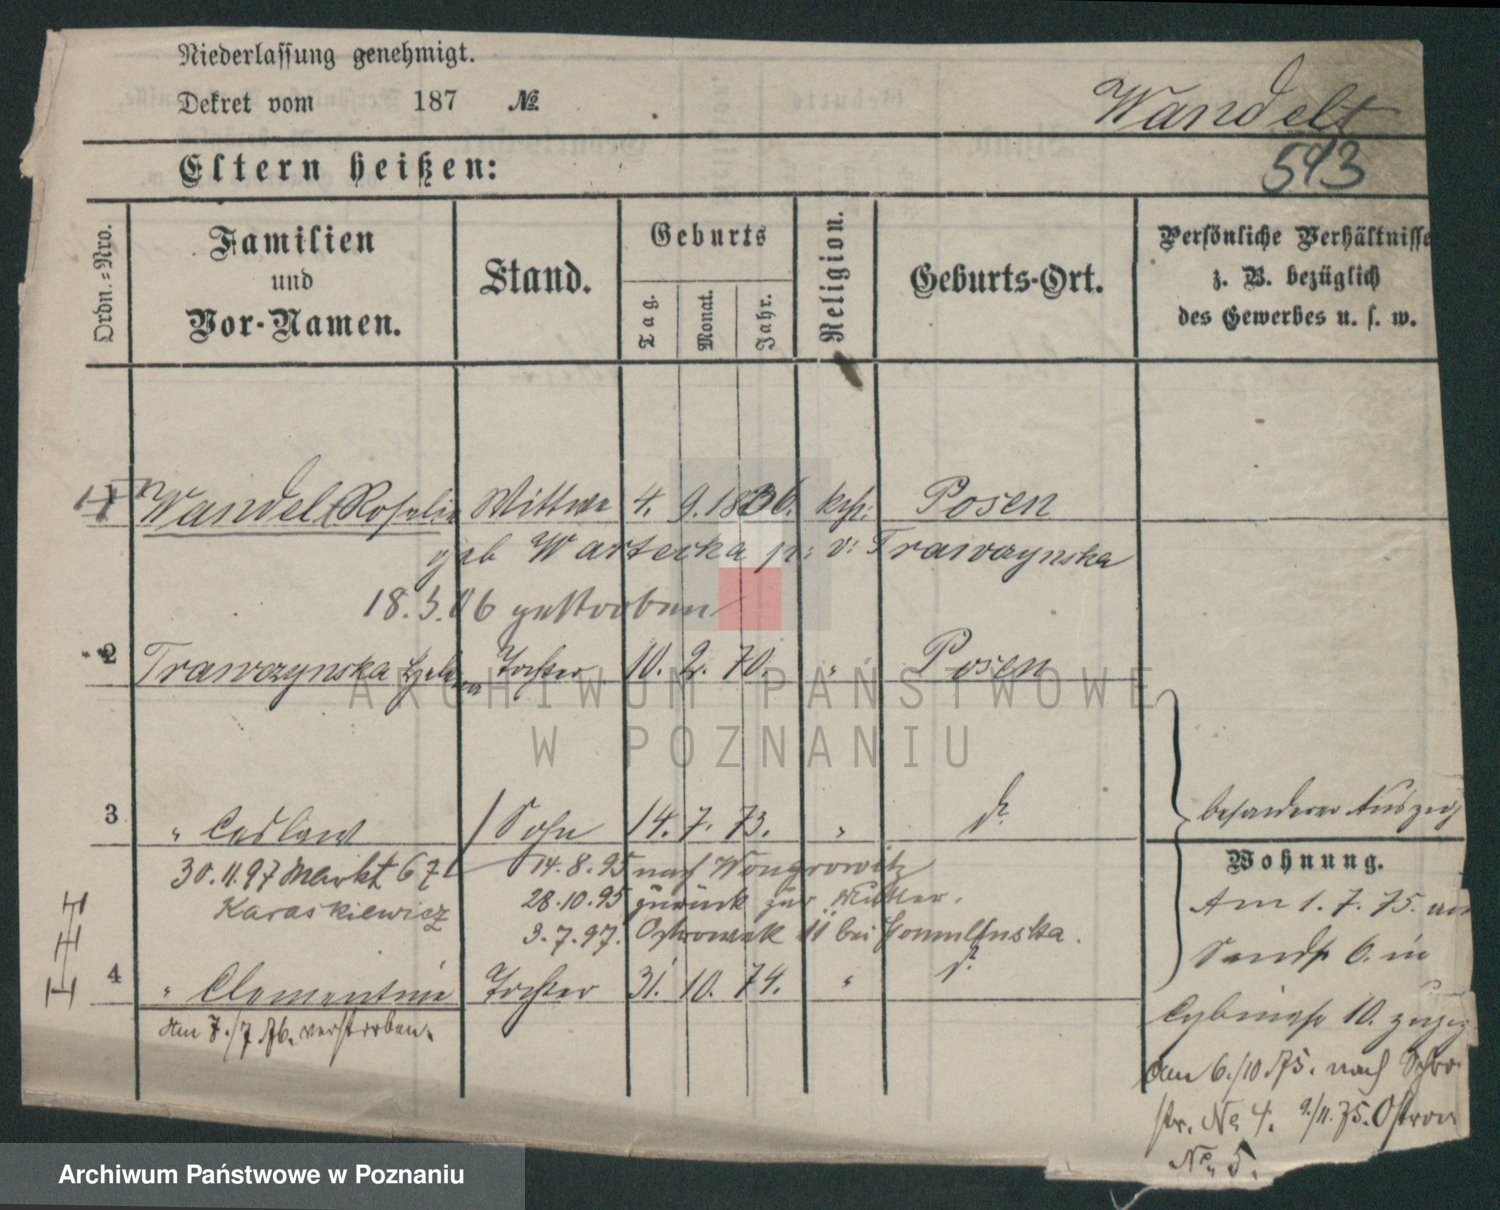 Niederlassung genehmigt.
Dekret vom 187 №
Wandelt
593
Eltern heißen:
Ordn.-Nro.
Familien
und
Vor-Namen.
Stand.
Geburts
Tag.
Monat.
Jahr.
Religion.
Geburts-Ort.
Persönliche Verhältnisse
z. B. bezüglich
des Gewerbes u. s. w.
1 Wandelt Rosalie Wittwe 4. 9. 1836. kath: Posen
geb Wartecka pr: v: Trawczynska
18.3.06 gestorben
2 Trawczynska Helena Tochter 10. 2. 70. " Posen
ARCHIWUM PAŃSTWOWE
W POZNANIU
3 " Ceslaw Sohn 14. 7. 73. " d°
besonderer Auszug
30.11.97 Markt 67 14.8.95 nach Wongrowitz
Karaskiewicz 28.10.95 zurück zur Mutter.
9.7.97. Ostrowek 11 bei
4 " Clementine Tochter 31. 10. 74. " d°
am 7./7 76. verstorben.
Wohnung.
Am 1. 7. 75. von
Sandstr 6. in
Cybinastr 10.
am 6./10.75. nach
str. No 4. 9./11.75. Ostrow
No. 5.
Archiwum Państwowe w Poznaniu